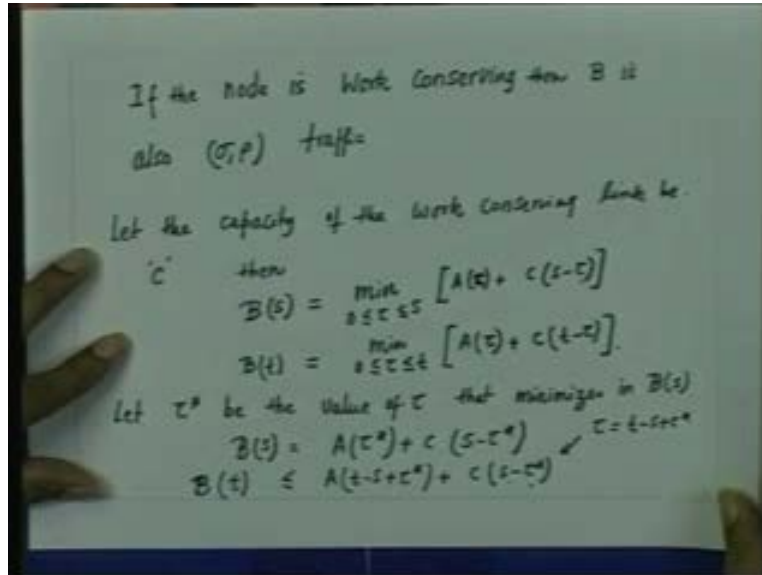 If the node is Work Conserving then B is
also (σ,ρ) traffic
Let the capacity of the work conserving link be
'C' then
B(s) = min 0≤τ≤s [A(τ) + C(s-τ)]
B(t) = min 0≤τ≤t [A(τ) + C(t-τ)].
Let τ* be the value of τ that minimizes in B(s)
B(s) = A(τ*) + C (s-τ*)
B(t) ≤ A(t-s+τ*) + C(s-τ*) ↙ τ = t-s+τ*